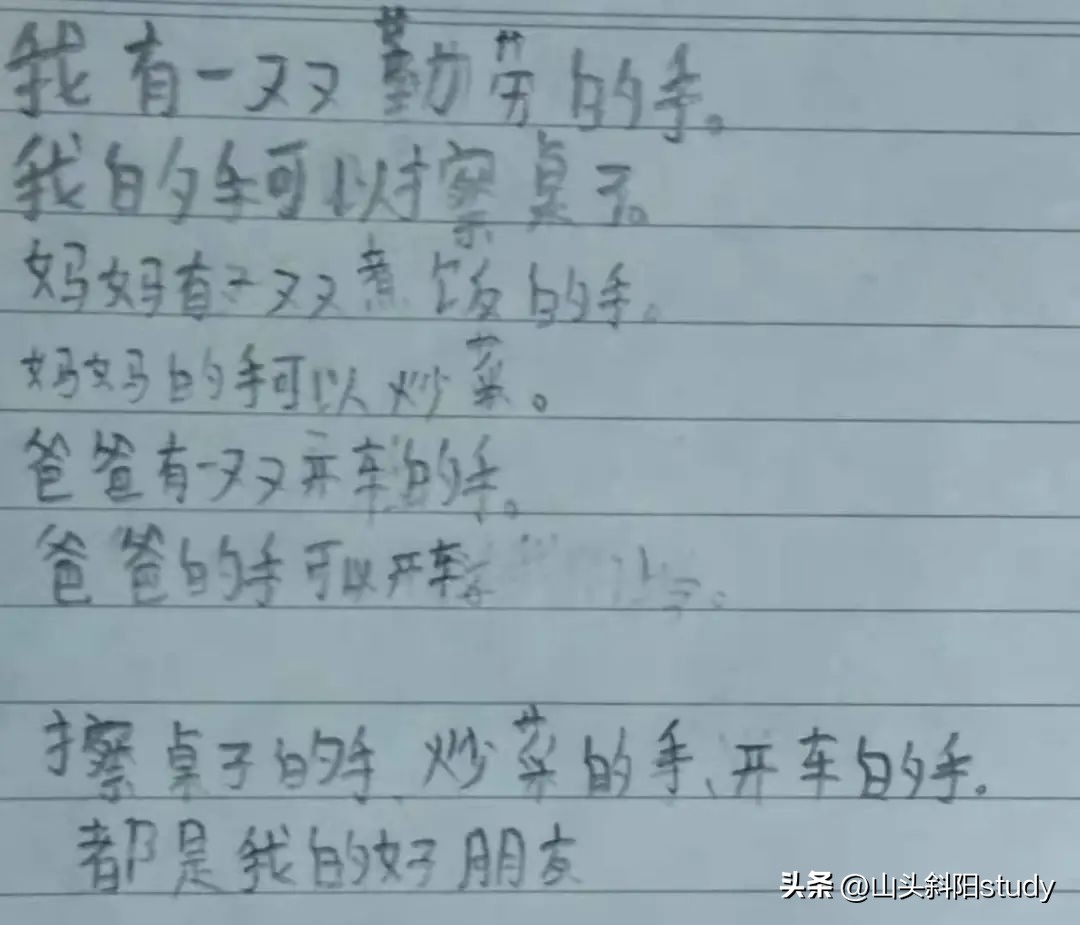 我有一双勤劳的手。
我的手可以擦桌子。
妈妈有一双煮饭的手。
妈妈的手可以炒菜。
爸爸有一双开车的手。
爸爸的手可以开车。
擦桌子的手、炒菜的手、开车的手。
都是我的好朋友
头条 @山头斜阳study